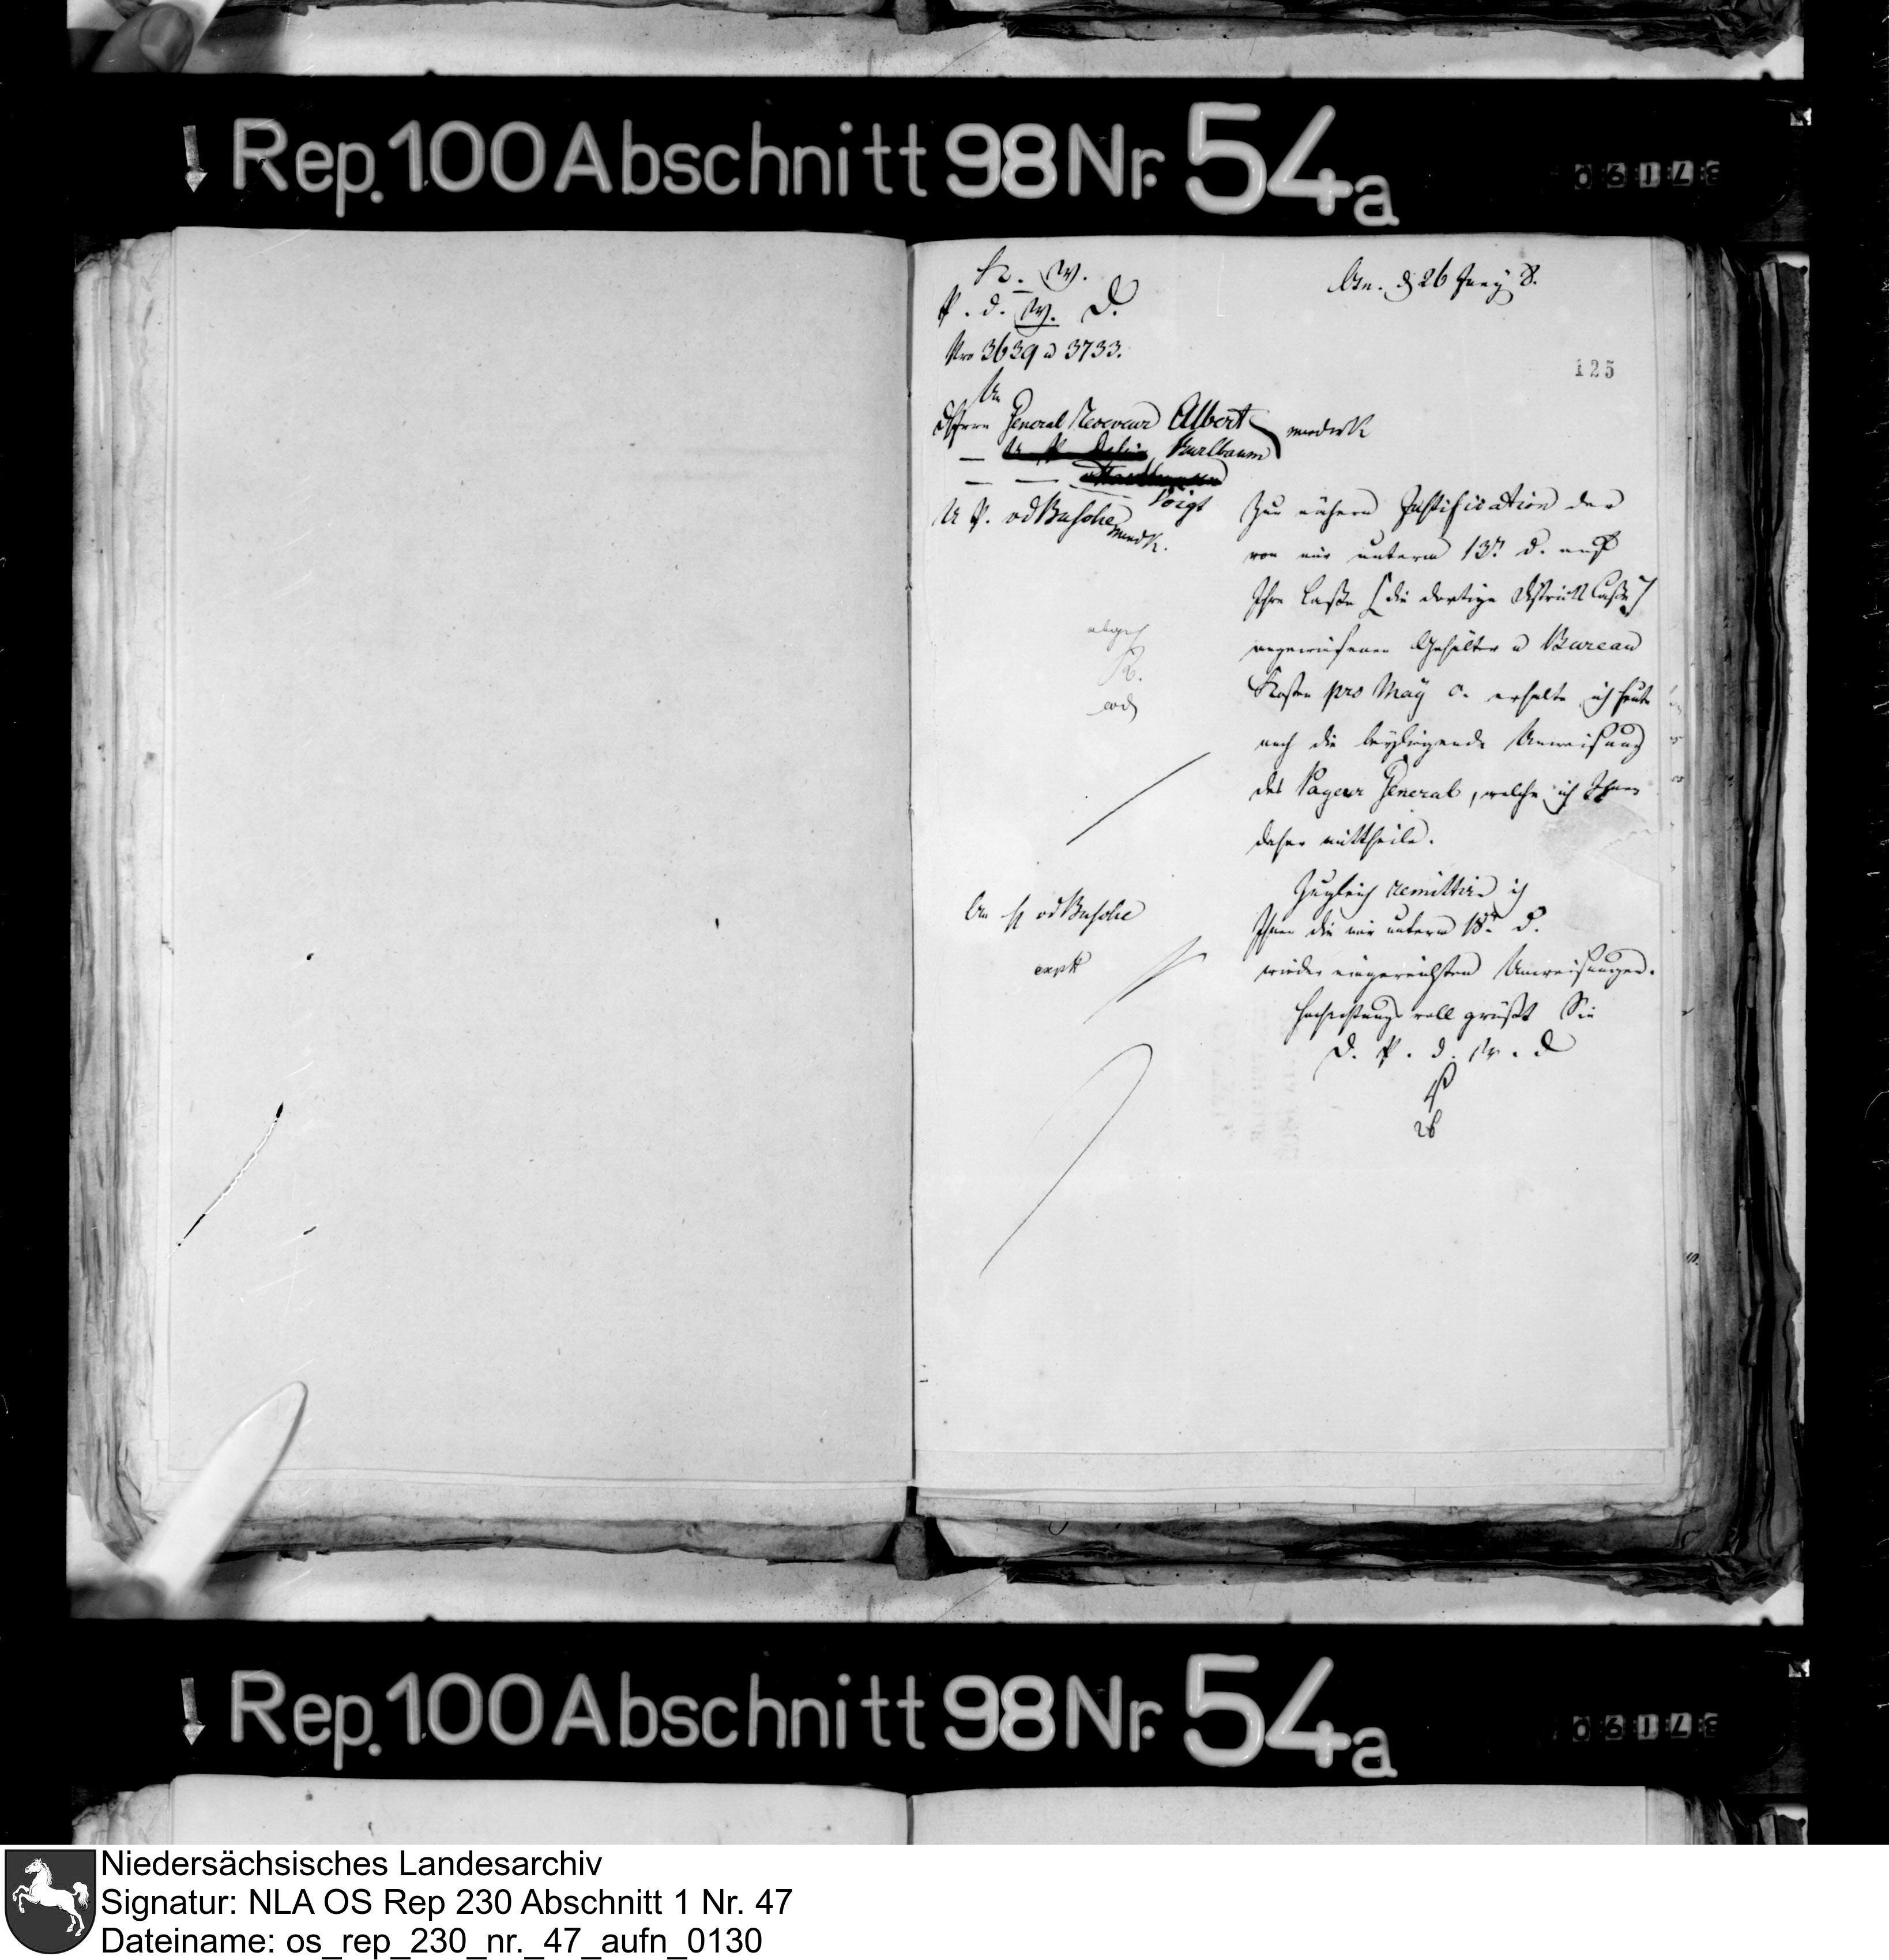 Rep. 100 Abschnitt 98 Nr. 54a
K. W.
P. d. W. D.
Nro 3639 u 3733.
Osn. d 26 Juny 8.
125
An
Herrn General Receveur Albert
Kurlbaum
Voigt
U P. vd Busche
mundt.
Zur nähern Justification der
von mir unterm 13n d. auf
Ihre Casse [die dortige District Casse]
angewiesenen Gehälter u Bureau
Kosten pro May c. erhalte ich heute
noch die beyliegende Anweisung
des Payeur General, welche ich Ihnen
daher mittheile.
An H vd Busche
Zugleich remittire ich
Ihnen die mir unterm 18n d.
wieder eingereichten Anweisungen.
Hochachtungsvoll grüßt Sie
D. P. d. W. D
26
Rep. 100 Abschnitt 98 Nr. 54a
Niedersächsisches Landesarchiv
Signatur: NLA OS Rep 230 Abschnitt 1 Nr. 47
Dateiname: os_rep_230_nr._47_aufn_0130